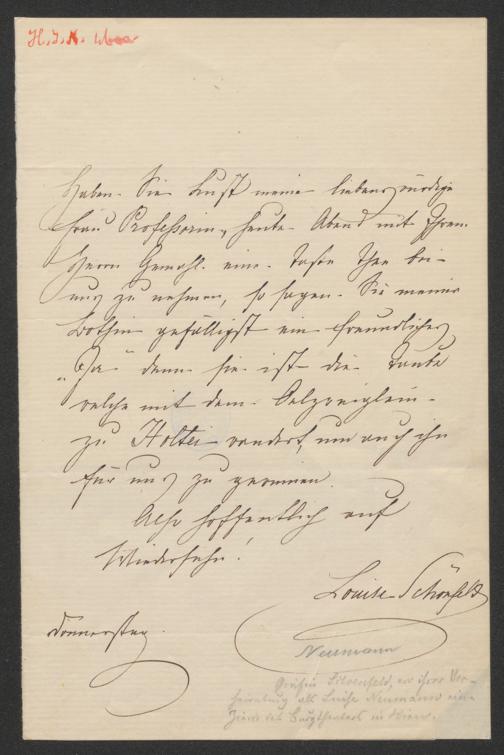 Haben Sie Lust meine liebenswürdige
Frau Professorin, heute Abend mit Ihren
Herrn Gemahl eine Tasse Thee bei
uns zu nehmen, so sagen Sie meiner
Bothin gefälligst ein freundliches
„Ja" denn sie ist die Taube
welche mit dem Oelzweiglein
zu Holtei wandert, um auch ihn
für uns zu gewinnen.
Also hoffentlich auf
Wiedersehn!
Louise Schönfeld
Donnerstag.
Neumann
Gräfin Schönfeld, vor ihrer Ver-
heiratung als Luise Neumann eine
Zierde des Burgtheaters in Wien.